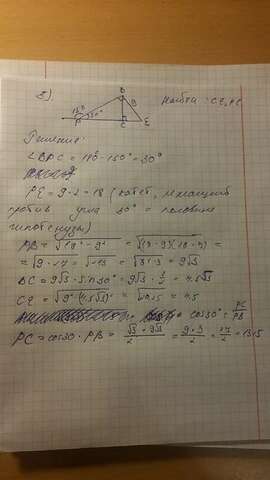 8)
B
Найти: CE, PC
150°
30°
9
P
C
E
Решение
∠BPC = 180-150° = 30°
PE = 9·2 = 18 (катет, лежащий
против угла 30° = половине
гипотенузы)
PB = √18² - 9² = √(18-9)(18+9) =
= √9·27 = √243 = √81·3 = 9√3
BC = 9√3 · sin 30° = 9√3 · 1/2 = 4.5√3
CE = √9² - (4.5√3)² = √20.25 = 4.5
cos 30° = PC/PB
PC = cos30 · PB = √3 · 9√3 / 2 = 9·3/2 = 27/2 = 13.5